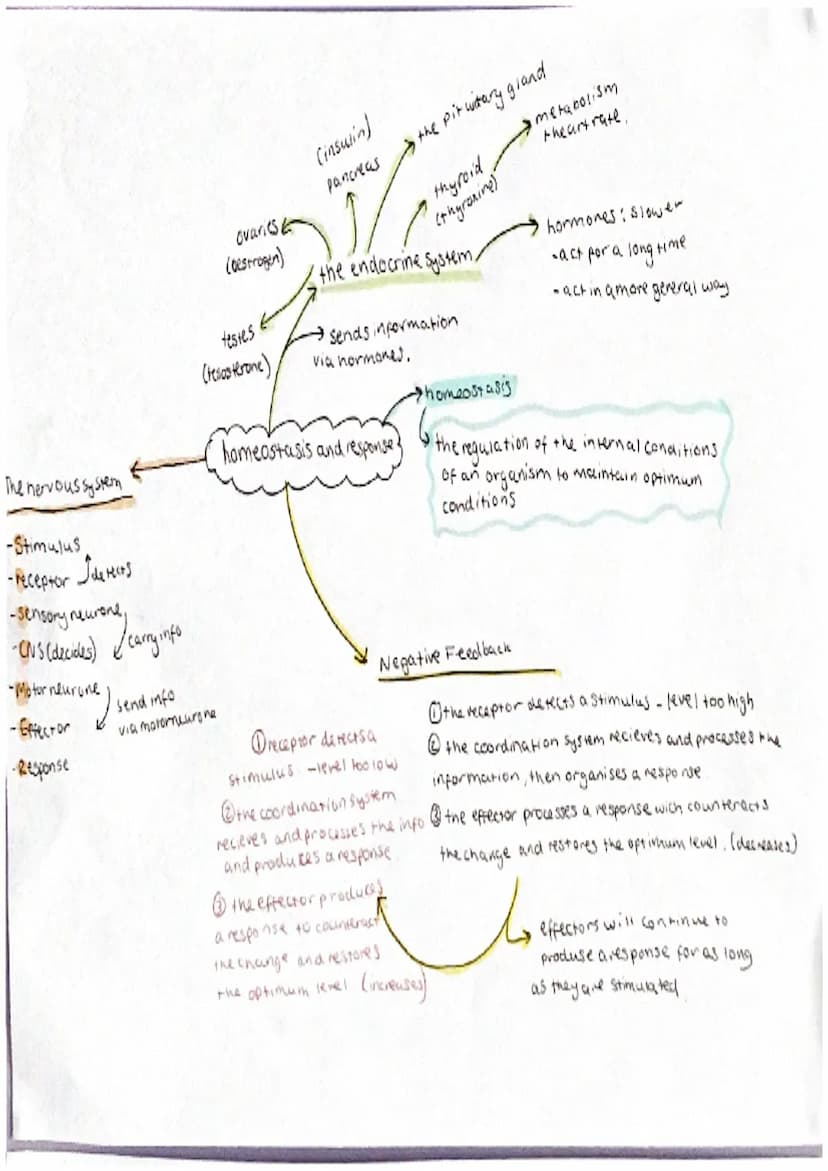 the pituitary gland
metabolism
+heart rate.
(insulin)
pancreas
thyroid
(thyroxine)
ovaries
(oestrogen)
the endocrine system
hormones: slower
-act for a long time
-act in a more general way
testes
(testosterone)
sends information
via hormones.
homeostasis
homeostasis and response
the regulation of the internal conditions
of an organism to maintain optimum
conditions
The nervous system
-Stimulus
-receptor
detects
-sensory neurone
-CNS (decides)
carry info
-Motor neurone
send info
via motorneurone
-Effector
-Response
Negative Feedback
① the receptor detects a stimulus - level too high
② the coordination system recieves and processes the
information, then organises a response
③ the effector processes a response wich counteracts
the change and restores the optimum level. (decreases)
① receptor detects a
stimulus - level too low
② the coordination system
recieves and processes the info
and produces a response
③ the effector produces
a response to counteract
the change and restores
the optimum level (increases)
effectors will continue to
produse a response for as long
as they are stimulated